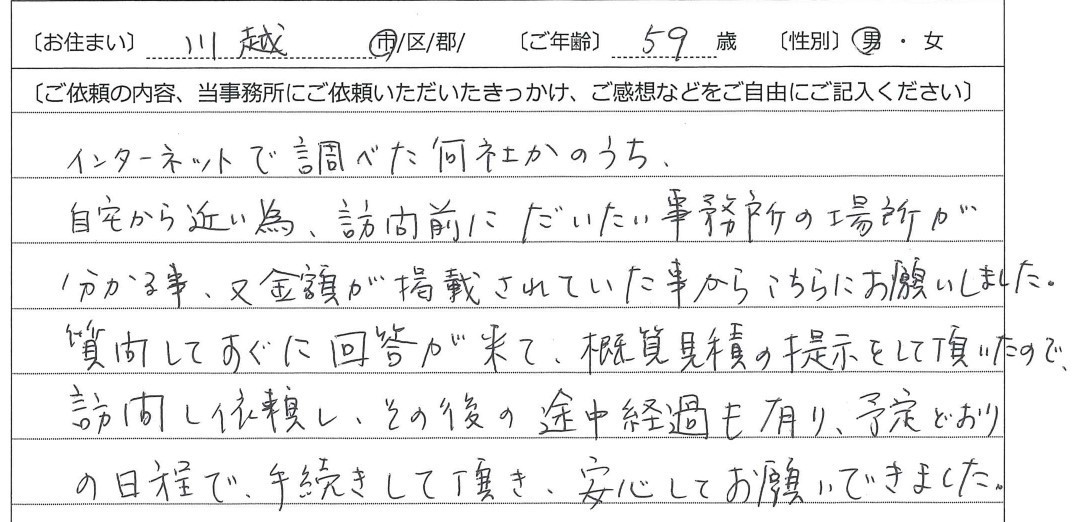 〔お住まい〕 川越 市/区/郡/ 〔ご年齢〕 59 歳 〔性別〕 男 ・ 女
〔ご依頼の内容、当事務所にご依頼いただいたきっかけ、ご感想などをご自由にご記入ください〕
インターネットで調べた何社かのうち、
自宅から近い為、訪問前にだいたい事務所の場所が
分かる事、又金額が掲載されていた事からこちらにお願いしました。
質問してすぐに回答が来て、概算見積の提示をして頂いたので、
訪問し依頼し、その後の途中経過も有り、予定どおり
の日程で、手続きして頂き、安心してお願いできました。